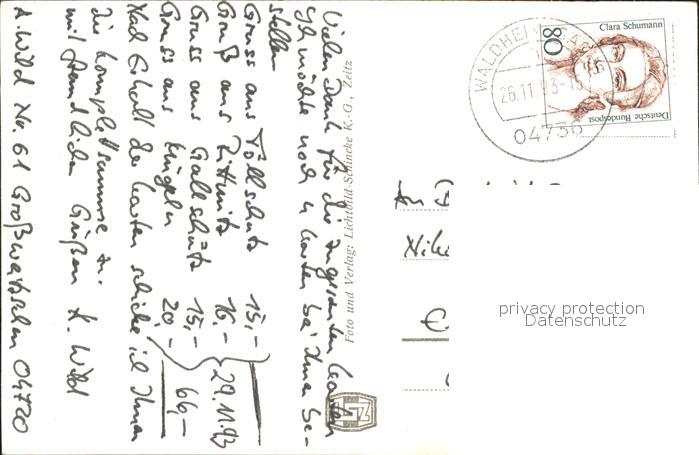 Vielen Dank für die zugesandten Karten
Ich möchte noch 4 Karten bei Ihnen be-
stellen
Gruss aus Töllschütz 15,-
Gruß aus Zittnitz 16.-
Gruss aus Gallschütz 15,-
Gruss aus Mügeln 20,-
66,-
29.11.93
Nach Erhalt der Karten schicke ich Ihnen
die komplettsumme zu.
mit freundlichen Grüßen A. Wild
A. Wild Nr. 61 Großweitzschen 04720
Foto und Verlag: Lichtbild-Schincke K.-G., Zeitz
WALDHEIM
26.11.93-15
04736
Clara Schumann
80
Deutsche Bundespost
An
privacy protection
Datenschutz